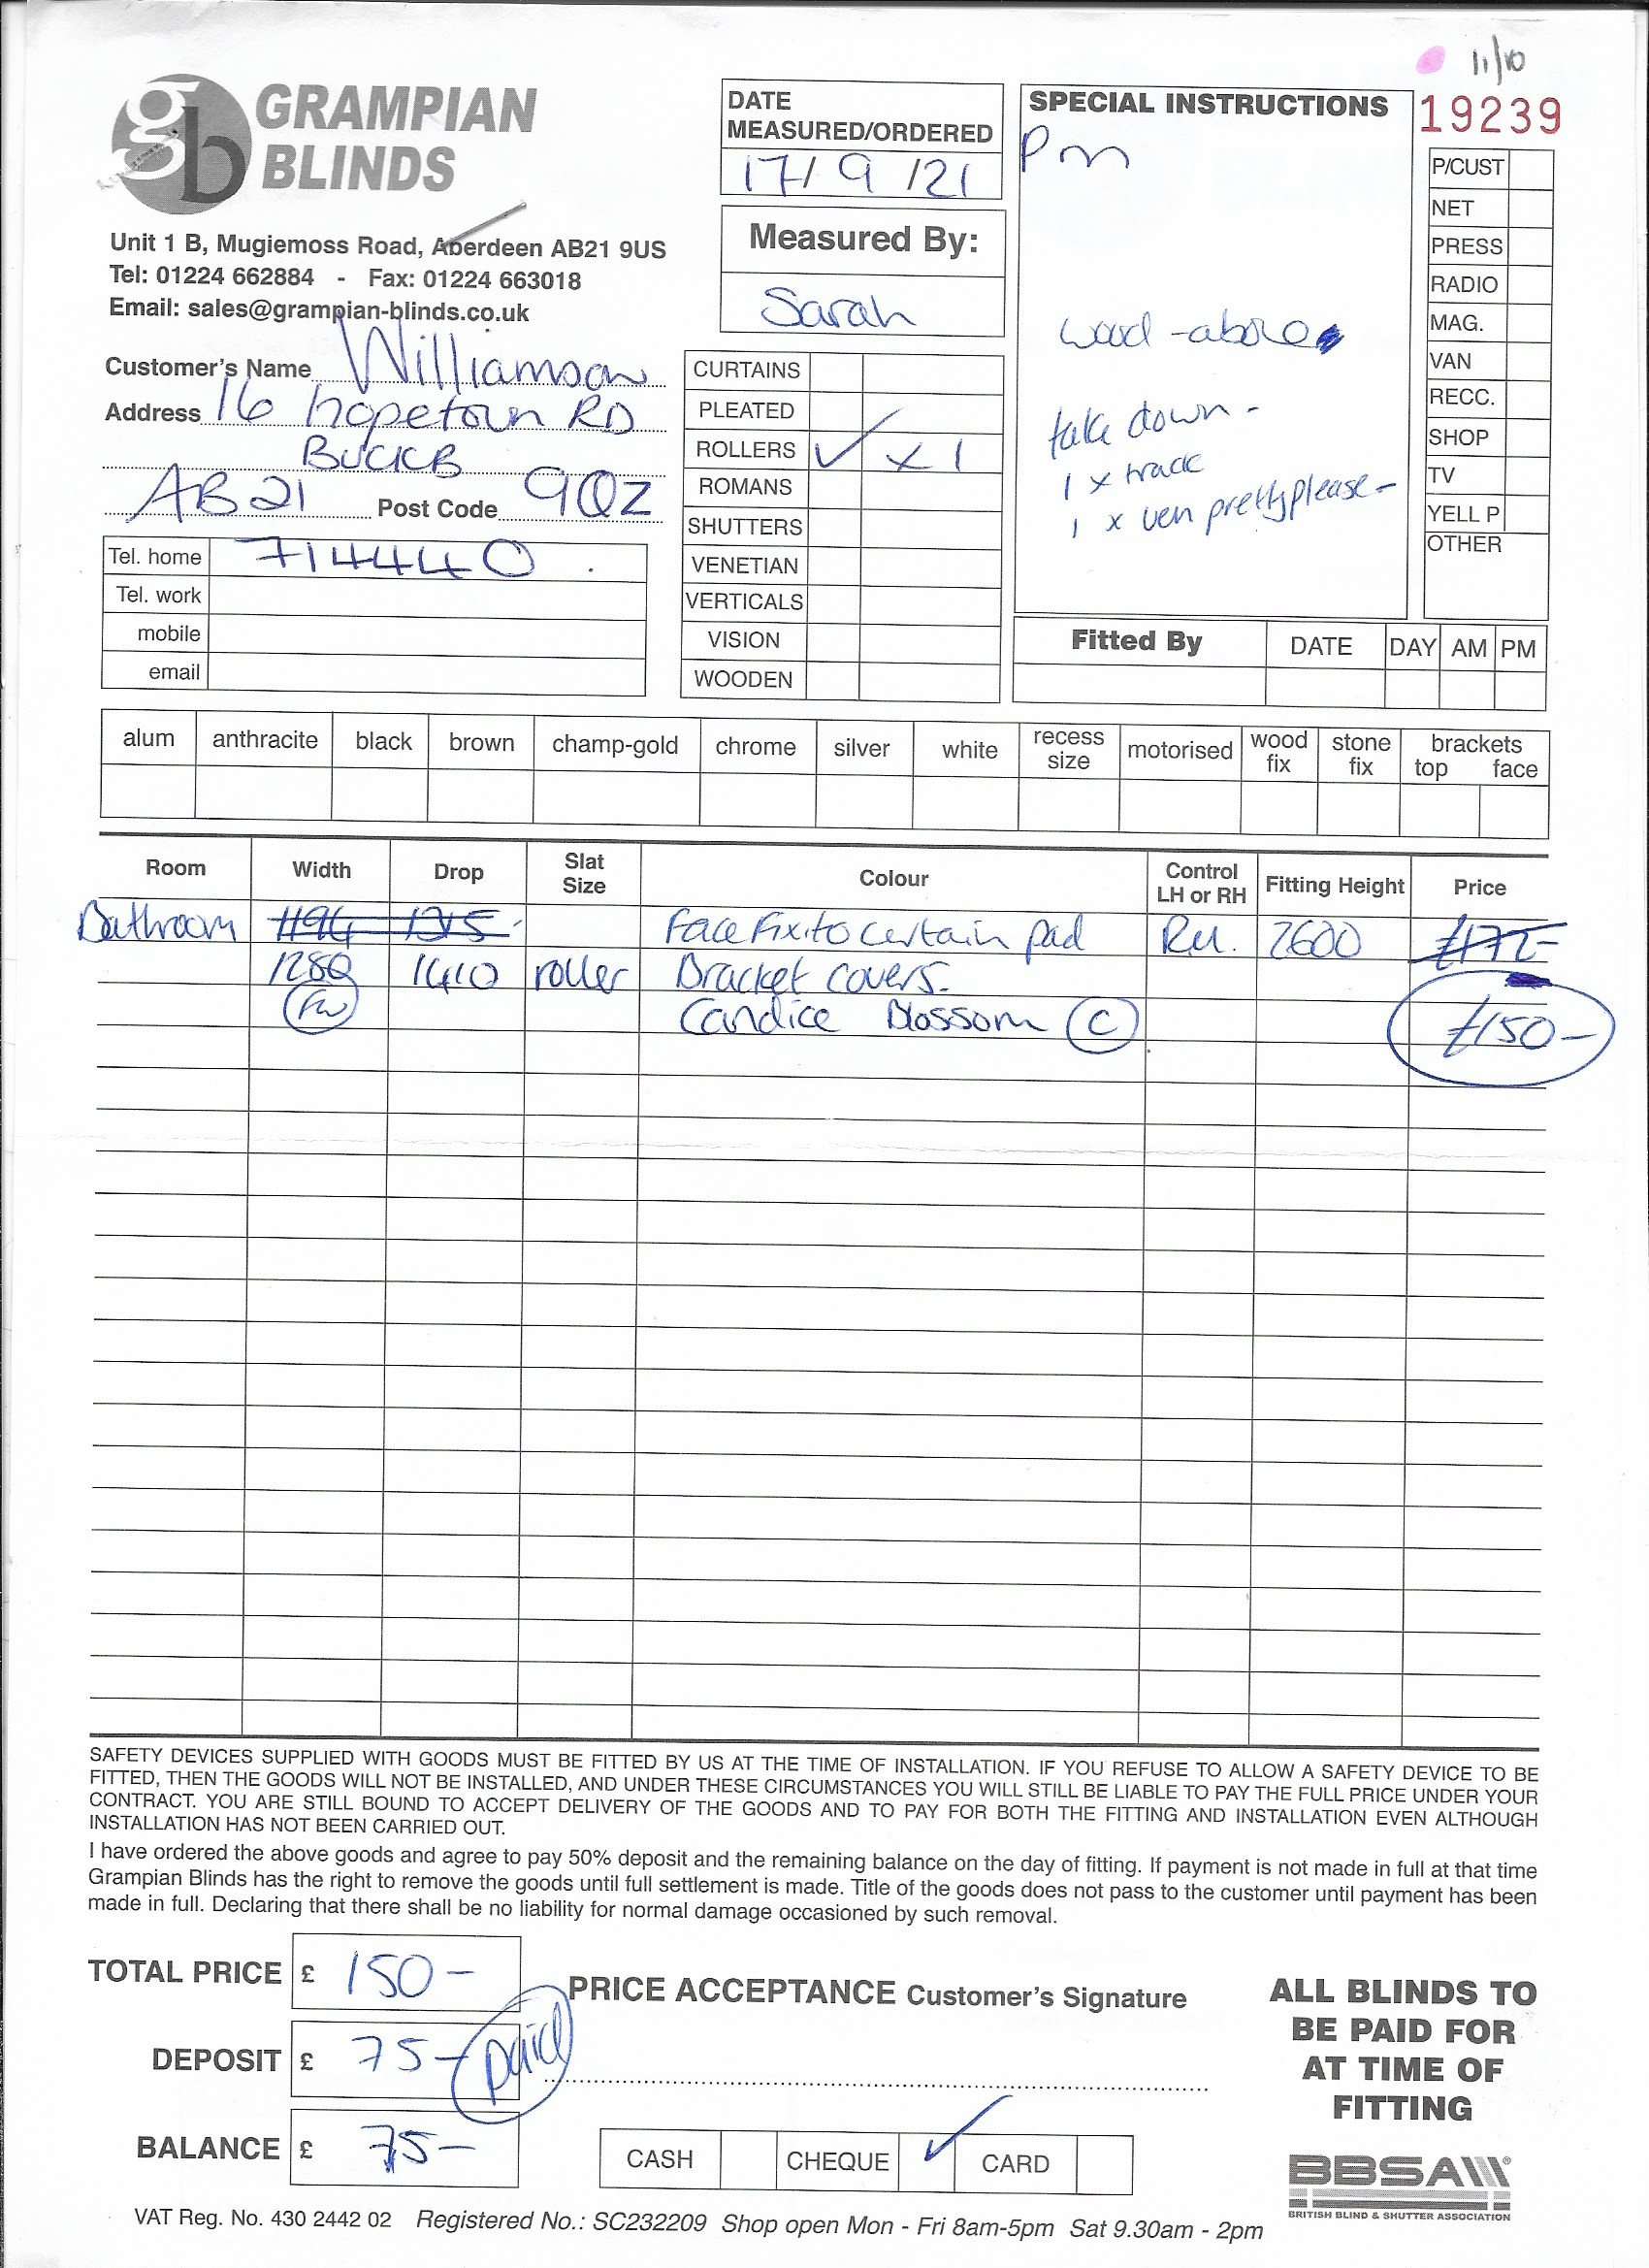 11/10
gb GRAMPIAN BLINDS
Unit 1 B, Mugiemoss Road, Aberdeen AB21 9US
Tel: 01224 662884 - Fax: 01224 663018
Email: sales@grampian-blinds.co.uk
Customer's Name Williamson
Address 16 hopetown RD
BUCKB
AB21 Post Code 9QZ
Tel. home 714440
Tel. work
mobile
email
DATE
MEASURED/ORDERED
17/9/21
Measured By:
Sarah
CURTAINS
PLEATED
ROLLERS ✓ x 1
ROMANS
SHUTTERS
VENETIAN
VERTICALS
VISION
WOODEN
SPECIAL INSTRUCTIONS
Pm
wood - above
take down -
1 x track
1 x ven pretty please -
19239
P/CUST
NET
PRESS
RADIO
MAG.
VAN
RECC.
SHOP
TV
YELL P
OTHER
Fitted By DATE DAY AM PM
alum anthracite black brown champ-gold chrome silver white recess size motorised wood fix stone fix brackets top face
Room Width Drop Slat Size Colour Control LH or RH Fitting Height Price
Bathroom 1194 Face Fix to certain pad RH. 2600 £172-
1280 1410 roller Bracket covers.
FW Candice Blossom C £150-
SAFETY DEVICES SUPPLIED WITH GOODS MUST BE FITTED BY US AT THE TIME OF INSTALLATION. IF YOU REFUSE TO ALLOW A SAFETY DEVICE TO BE
FITTED, THEN THE GOODS WILL NOT BE INSTALLED, AND UNDER THESE CIRCUMSTANCES YOU WILL STILL BE LIABLE TO PAY THE FULL PRICE UNDER YOUR
CONTRACT. YOU ARE STILL BOUND TO ACCEPT DELIVERY OF THE GOODS AND TO PAY FOR BOTH THE FITTING AND INSTALLATION EVEN ALTHOUGH
INSTALLATION HAS NOT BEEN CARRIED OUT.
I have ordered the above goods and agree to pay 50% deposit and the remaining balance on the day of fitting. If payment is not made in full at that time
Grampian Blinds has the right to remove the goods until full settlement is made. Title of the goods does not pass to the customer until payment has been
made in full. Declaring that there shall be no liability for normal damage occasioned by such removal.
TOTAL PRICE £ 150-
DEPOSIT £ 75- paid
BALANCE £ 75-
PRICE ACCEPTANCE Customer's Signature
CASH CHEQUE ✓ CARD
ALL BLINDS TO
BE PAID FOR
AT TIME OF
FITTING
BBSA
BRITISH BLIND & SHUTTER ASSOCIATION
VAT Reg. No. 430 2442 02 Registered No.: SC232209 Shop open Mon - Fri 8am-5pm Sat 9.30am - 2pm